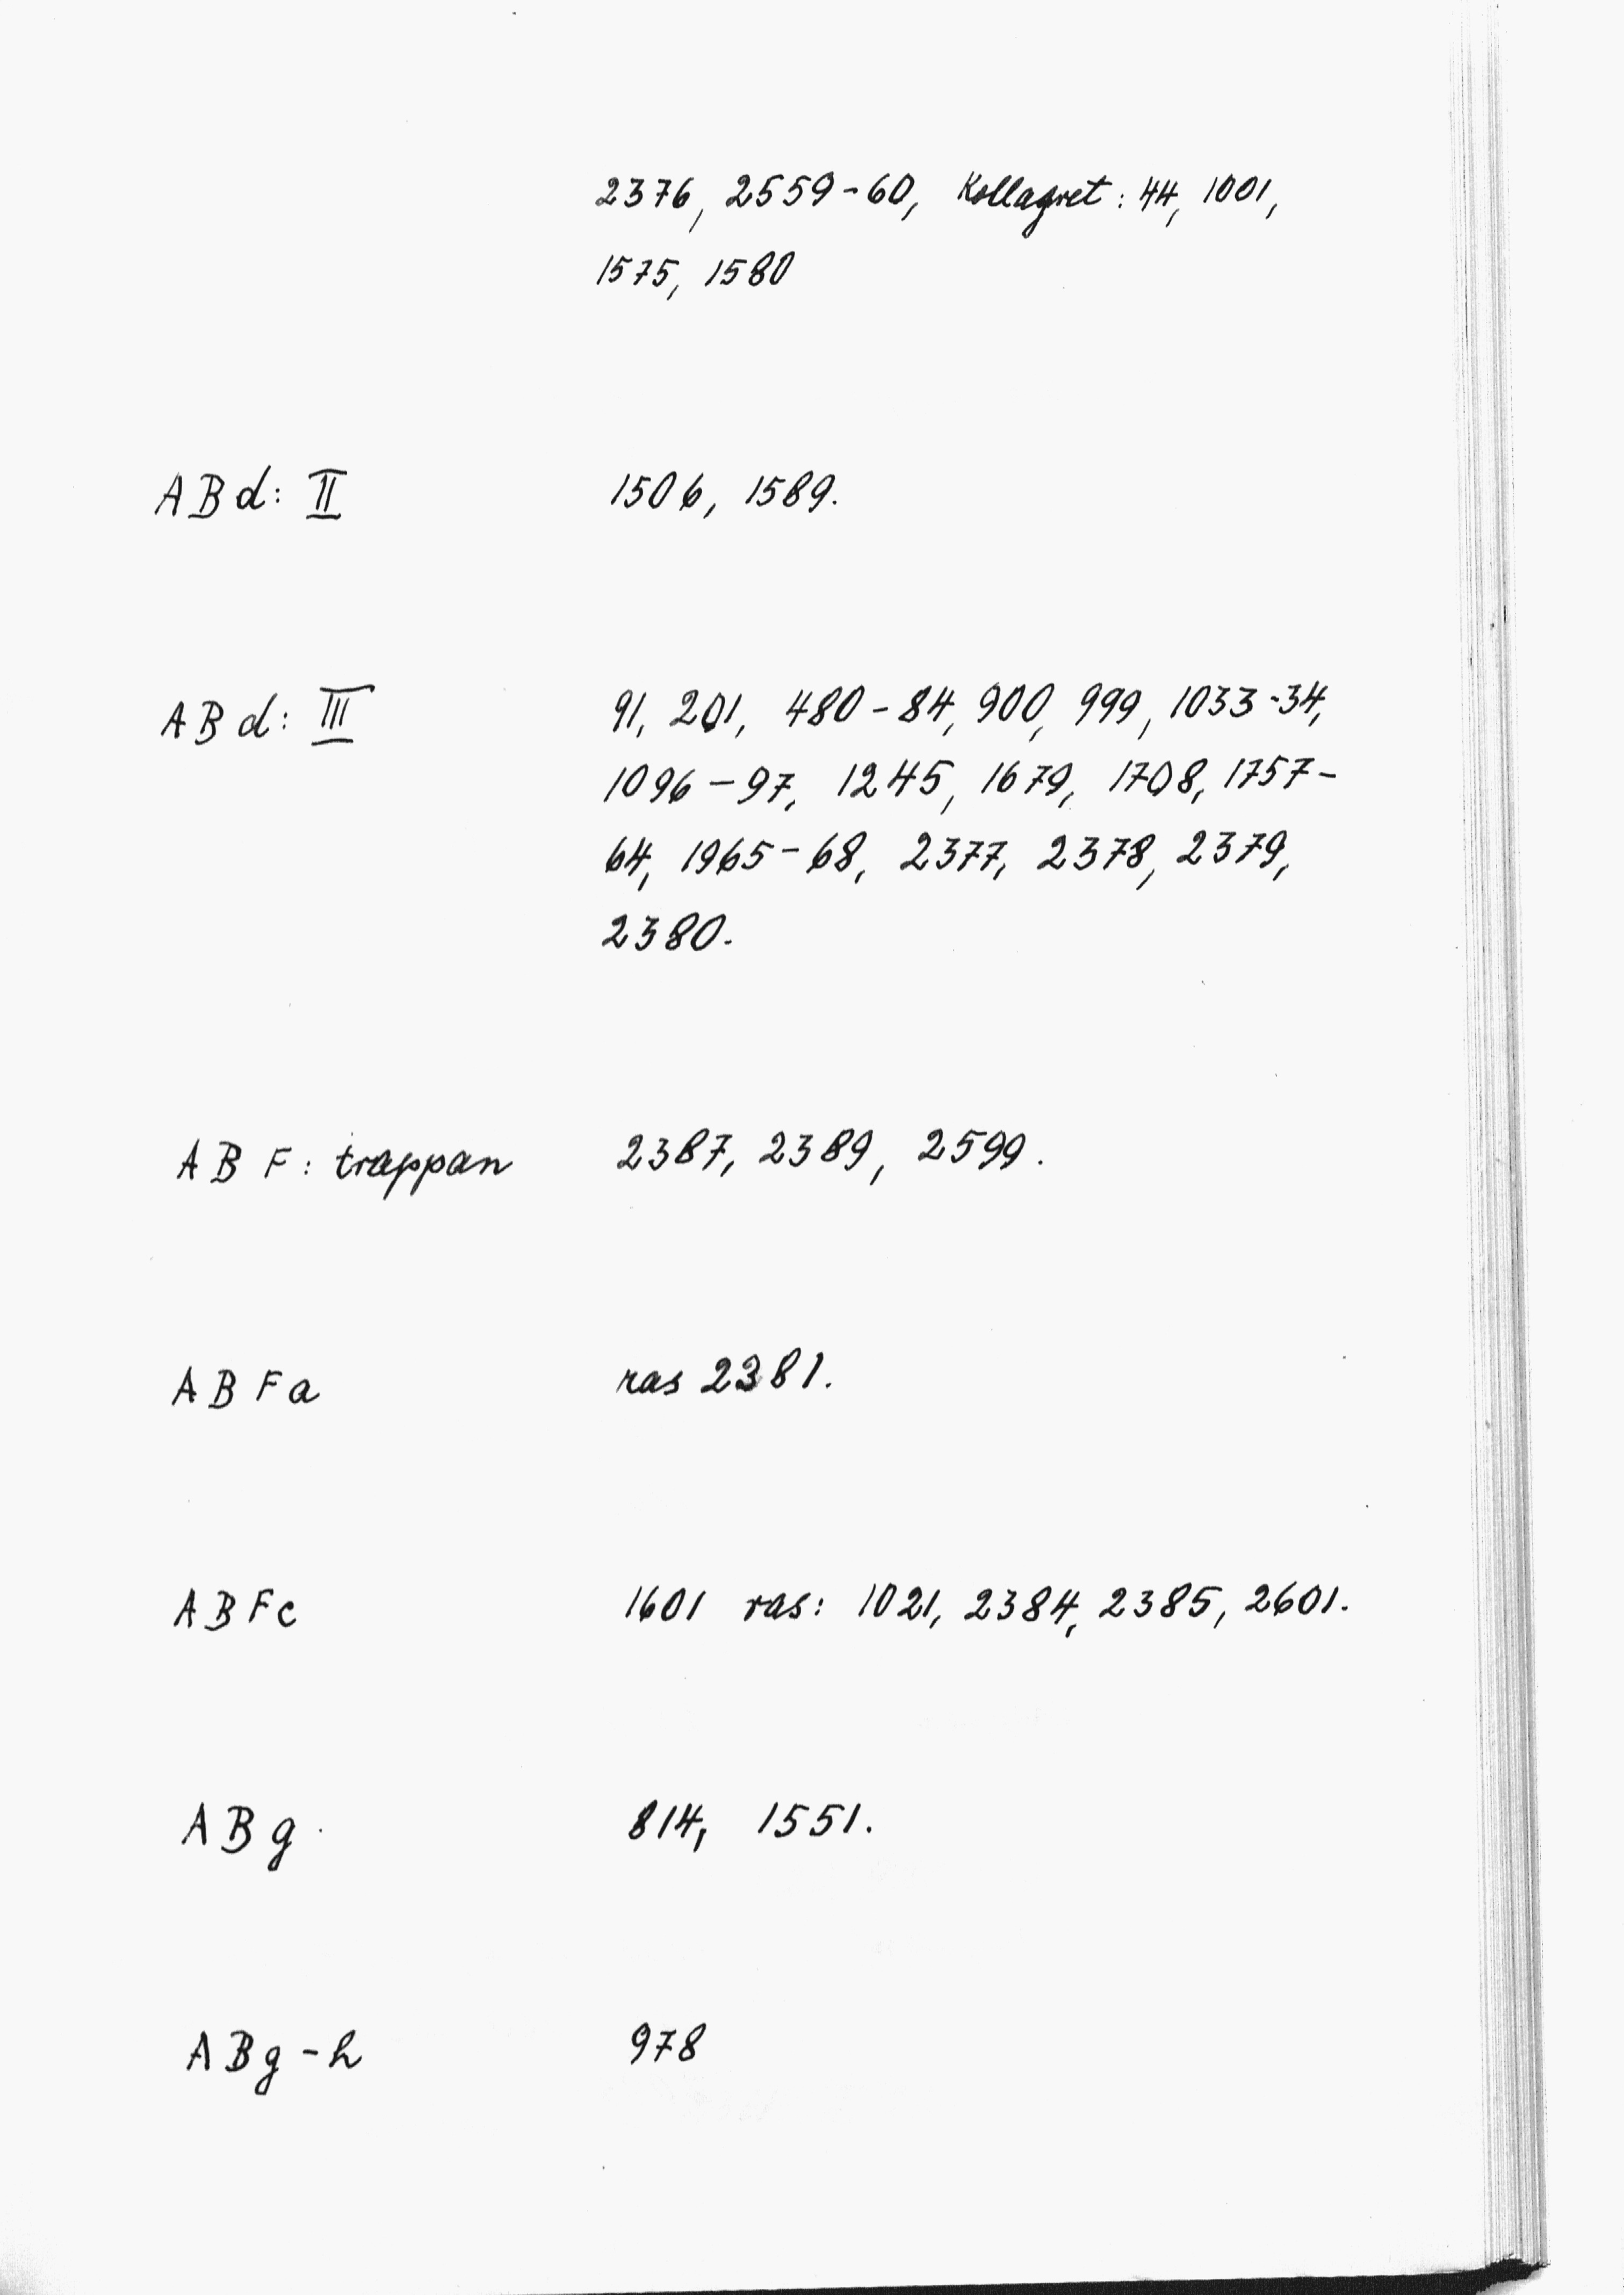 2376, 2559-60, Kollagret: 44, 1001,
1575, 1580
ABd: II 1506, 1589.
ABd: III 91, 201, 480-84, 900, 999, 1033-34,
1096-97, 1245, 1679, 1708, 1757-
64, 1965-68, 2377, 2378, 2379,
2380.
ABF: trappan 2387, 2389, 2599.
ABFa ras 2381.
ABFc 1601 ras: 1021, 2384, 2385, 2601.
ABg 814, 1551.
ABg-h 978